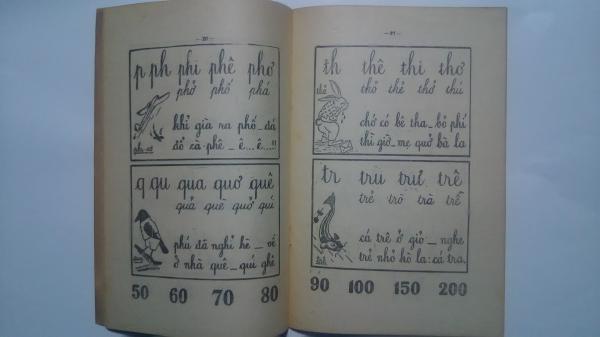 p ph phi phê phơ
phở phố phá
khỉ già ra phố _ đá
đổ cà-phê _ ê... ê...!!
q qu qua quơ quê
quả què quở quí
phú đã nghỉ hè _ về
ở nhà quê _ quí ghê
50 60 70 80
th thê thi thơ
thỏ
thỏ thẻ thớ thú
chớ có bê tha _ bỏ phí
thì giờ _ mẹ quở bà la
tr tru trư trê
trẻ trõ trà trễ
cá trê ở giỏ _ nghe
trẻ nhỏ hò la: cá tra.
90 100 150 200